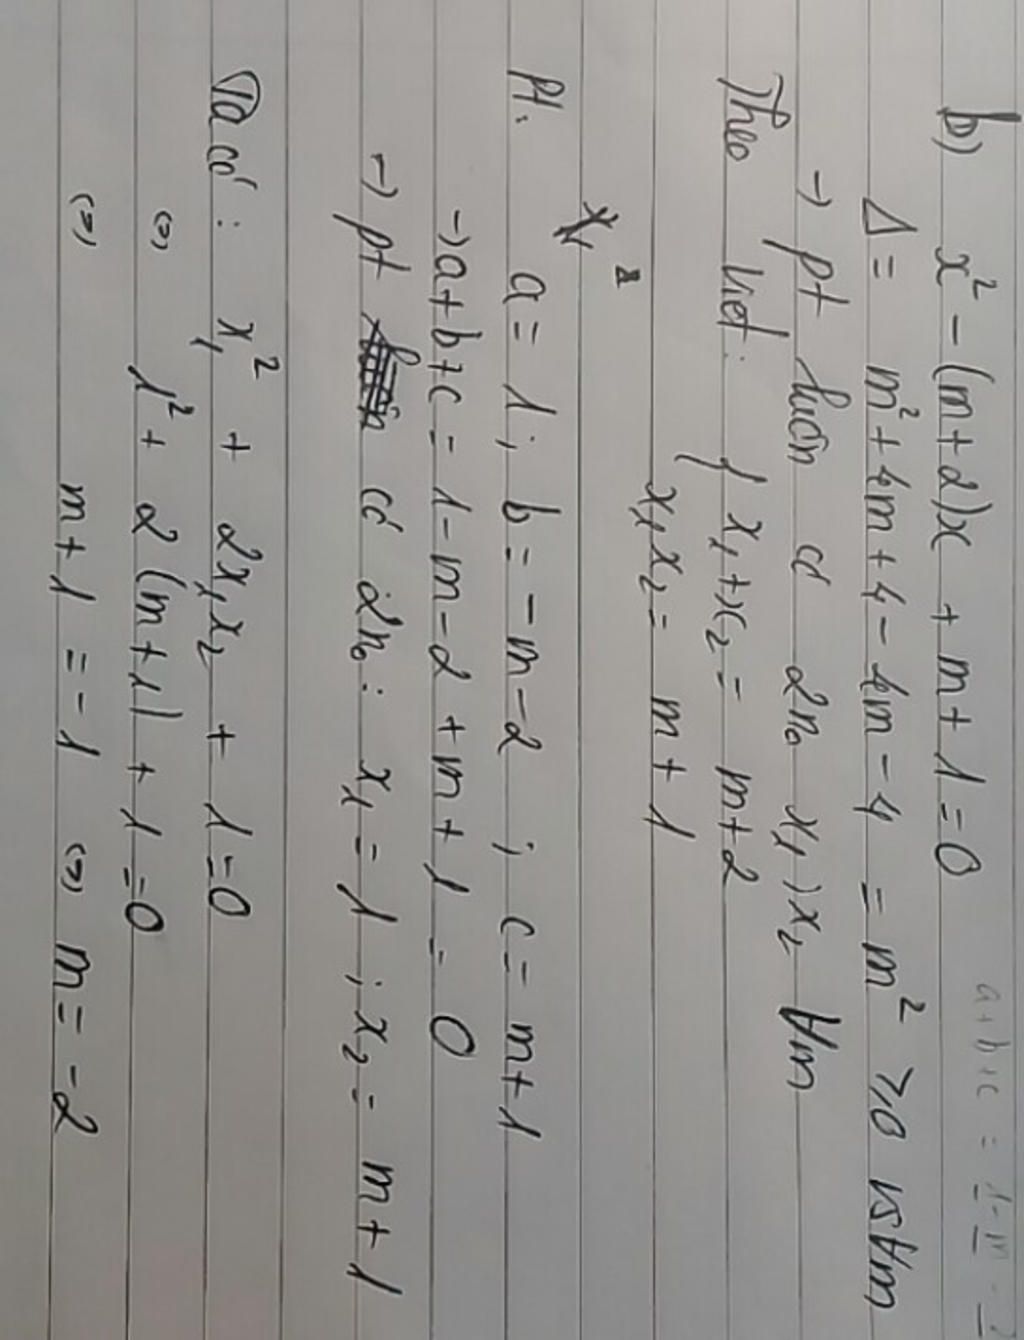 a+b+c = 1-m-2
b) x² - (m+2)x + m+1=0
Δ = m²+4m+4-4m-4 = m² ≥0 với ∀m
→ pt luôn có 2n₀ x₁, x₂ ∀m
Theo Viet: { x₁+x₂ = m+2
x₁x₂ = m+1
Pt: a=1; b=-m-2; c=m+1
→ a+b+c = 1-m-2+m+1 = 0
→ pt có 2n₀: x₁=1; x₂=m+1
Ta có: x₁² + 2x₁x₂ + 1=0
⇔ 1² + 2(m+1) + 1=0
⇔ m+1 = -1 ⇔ m=-2